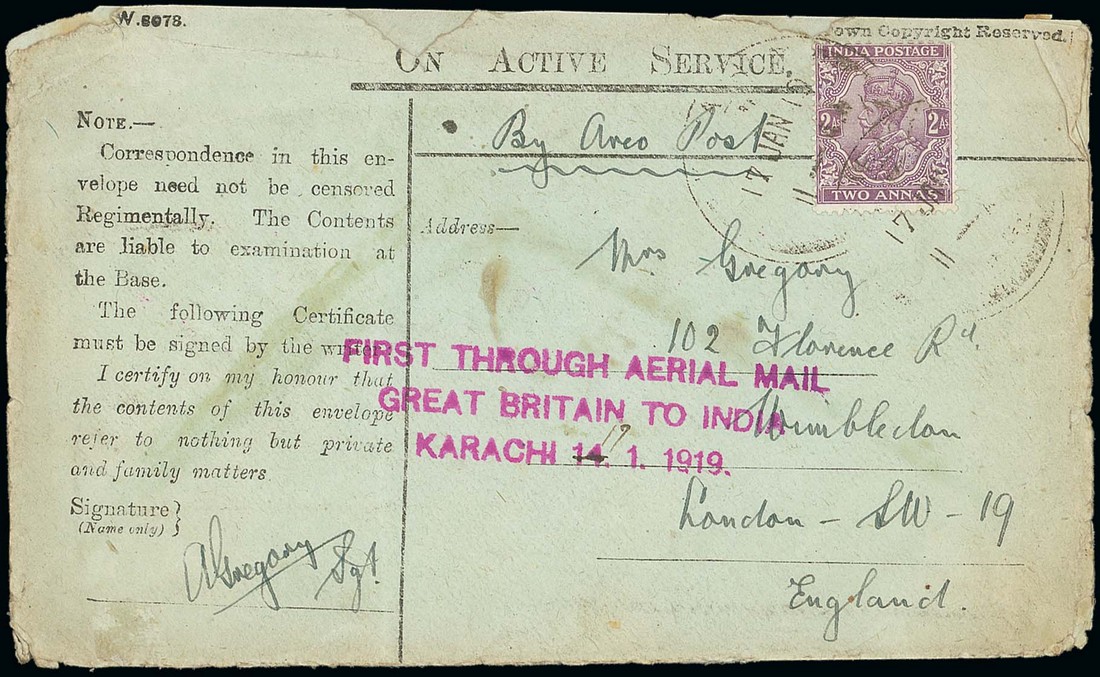 W.5073.
Crown Copyright Reserved.
ON ACTIVE SERVICE.
INDIA POSTAGE
2As 2As
TWO ANNAS
17 JAN 19
11
17 JA
11
By Areo Post
NOTE.—
Correspondence in this en-
velope need not be censored
Regimentally. The Contents
are liable to examination at
the Base.
The following Certificate
must be signed by the writer:
I certify on my honour that
the contents of this envelope
refer to nothing but private
and family matters.
Signature}
(Name only)
AGregory Sgt.
Address—
Mrs Gregory
102 Florence Rd.
Wimbledon
London - SW - 19
England.
FIRST THROUGH AERIAL MAIL
GREAT BRITAIN TO INDIA
KARACHI 14. 17 1. 1919.